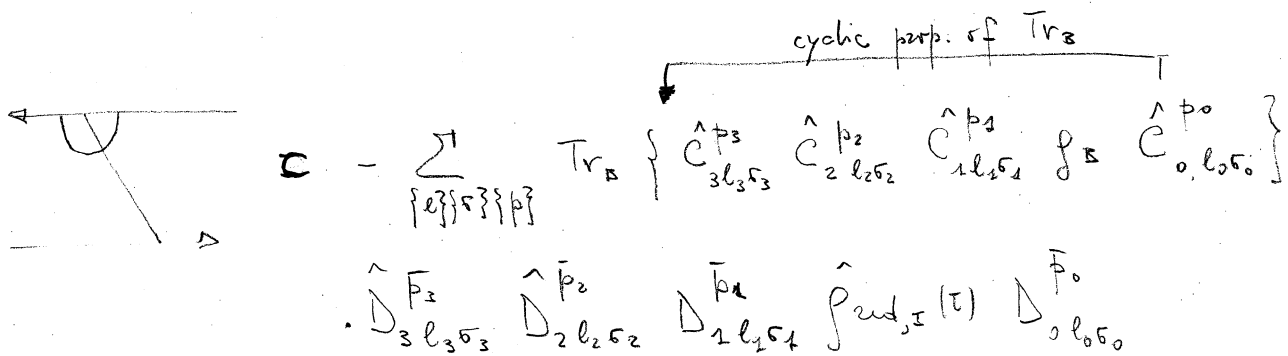 cyclic prop. of Tr_B
= - \sum_{\{l\}\{σ\}\{p\}} Tr_B \{ \hat{C}^{p_3}_{3 l_3 σ_3} \hat{C}^{p_2}_{2 l_2 σ_2} \hat{C}^{p_1}_{1 l_1 σ_1} ρ_B \hat{C}^{p_0}_{0, l_0 σ_0} \}
· \hat{D}^{\bar{p}_3}_{3 l_3 σ_3} \hat{D}^{\bar{p}_2}_{2 l_2 σ_2} D^{\bar{p}_1}_{1 l_1 σ_1} \hat{ρ}_{red,I}(τ) D^{\bar{p}_0}_{0 l_0 σ_0}